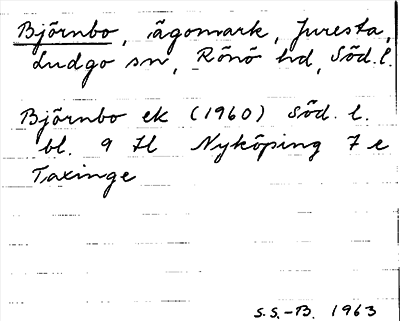 Björnbo, ägomark, Juresta,
Ludgo sn, Rönö hd, Söd. l.
Björnbo ek (1960) Söd. l.
bl. 9 H Nyköping 7 e
Taxinge
S.S.-B. 1963